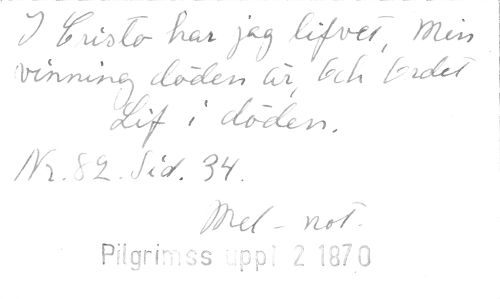 I Cristo har jag lifvet, Min
vinning döden är, Och Ordet
Lif i döden.
Nr. 82. Sid. 34.
Mel - not.
Pilgrimss uppl 2 1870